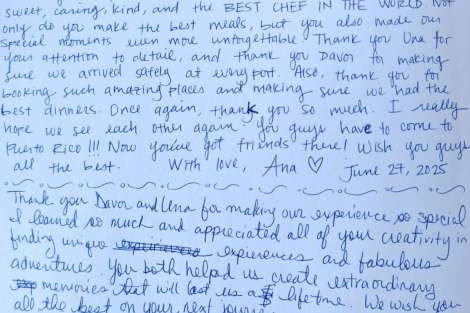 sweet, caring, kind, and the BEST CHEF IN THE WORLD. Not
only do you make the best meals, but you also made our
special moments even more unforgettable. Thank you Una for
your attention to detail, and thank you Davor for making
sure we arrived safely at every port. Also, thank you for
booking such amazing places and making sure we had the
best dinners. Once again, thank you so much. I really
hope we see each other again. You guys have to come to
Puerto Rico!!! Now you've got friends there! Wish you guys
all the best. With love, Ana ♡ June 27, 2025
Thank you Davor and Una for making our experience so special
I learned so much and appreciated all of your creativity in
finding unique experiences and fabulous
adventures. You both helped us create extraordinary
memories that will last us a lifetime. We wish you
all the best on your next